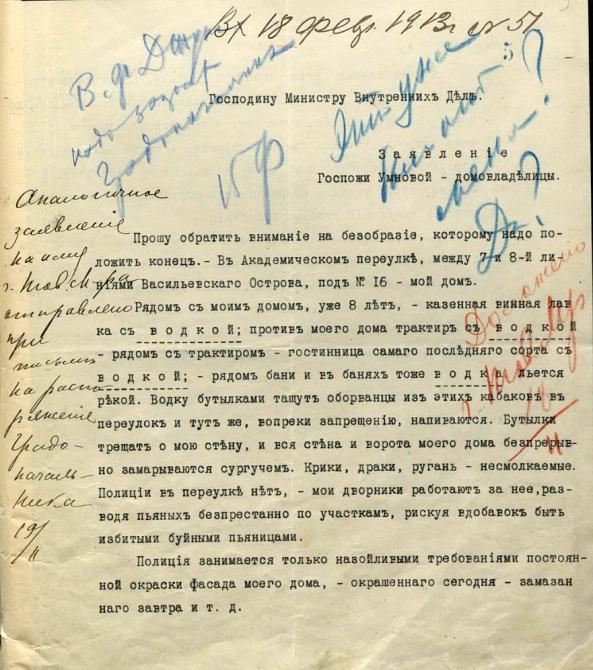 Вх 18 февр. 1913г № 51
5
В. ф. 
надо
15 ф
Это уже
Да?
Господину Министру Внутреннихъ Дѣлъ.
Заявленіе
Госпожи Умновой - домовладѣлицы.
Аналогичное
заявленіе
на имя
г. Тов. М-ра
отправлено
при
письмѣ
на распо
ряженіе
Градо-
началь-
ника
19/II
Прошу обратить вниманіе на безобразіе, которому надо по-
ложить конецъ.- Въ Академическомъ переулкѣ, между 7 и 8-й ли-
ніями Васильевскаго Острова, подъ № 16 - мой домъ.
Рядомъ съ моимъ домомъ, уже 8 лѣтъ, - казенная винная лав
ка съ водкой; противъ моего дома трактиръ съ водкой
- рядомъ съ трактиромъ - гостинница самаго послѣдняго сорта съ
водкой; - рядомъ бани и въ баняхъ тоже водка льется
рѣкой. Водку бутылками тащутъ оборванцы изъ этихъ кабаковъ въ
переулокъ и тутъ же, вопреки запрещенію, напиваются. Бутылки
трещатъ о мою стѣну, и вся стѣна и ворота моего дома безпрерыв-
но замарываются сургучемъ. Крики, драки, ругань - несмолкаемые.
Полиціи въ переулкѣ нѣтъ, - мои дворники работаютъ за нее,раз-
водя пьяныхъ безпрестанно по участкамъ, рискуя вдобавокъ быть
избитыми буйными пьяницами.
Полиція занимается только назойливыми требованіями постоян-
ной окраски фасада моего дома, - окрашеннаго сегодня - замазан
наго завтра и т. д.
Доложено
г. Тов. М-ру
18/II